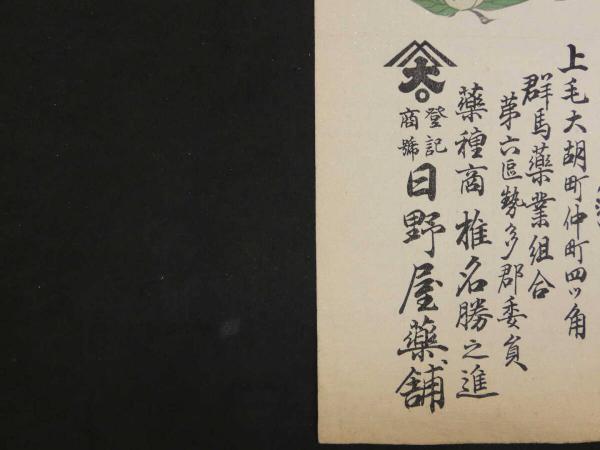 上毛大胡町仲町四ツ角
群馬藥業組合
第六區勢多郡委員
藥種商 椎名勝之進
大
登記
商號
日野屋藥舖